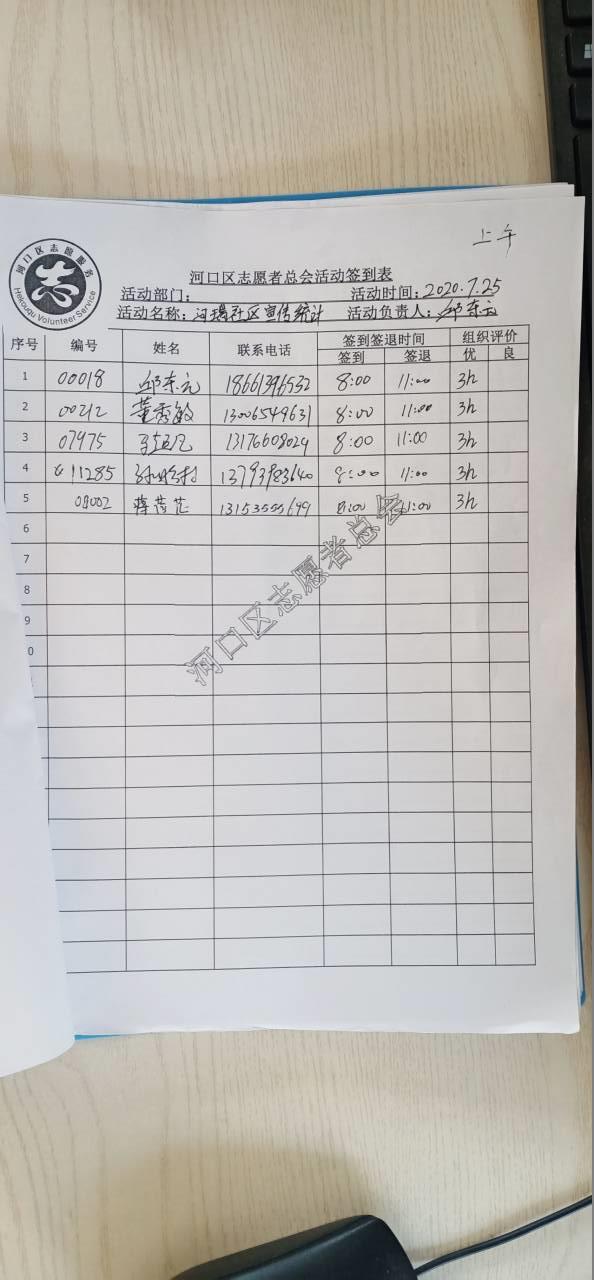 上午
河口区志愿服务
Hekouqu Volunteer Service
志
河口区志愿者总会活动签到表
活动部门： 活动时间：2020.7.25
活动名称：河瑞社区宣传统计 活动负责人：邱东元
序号 编号 姓名 联系电话 签到签退时间 组织评价
签到 签退 优 良
1 00018 邱东元 18661396532 8:00 11:00 3h
2 00212 董秀敏 13006549631 8:00 11:00 3h
3 07975 13176608029 8:00 11:00 3h
4 11285 13793983640 8:00 11:00 3h
5 08002 蒋茂芷 13153555699 8:00 11:00 3h
6
7
8
9
0
河口区志愿者总会